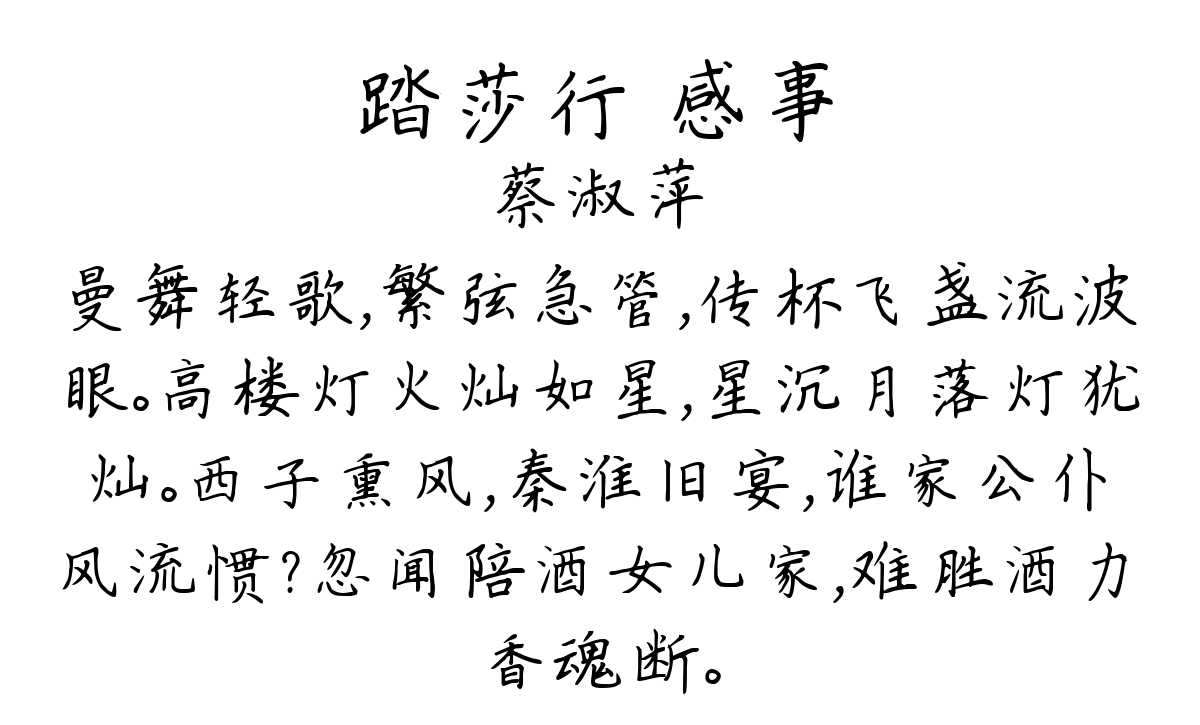 踏莎行 感事
蔡淑萍
曼舞轻歌,繁弦急管,传杯飞盏流波
眼。高楼灯火灿如星,星沉月落灯犹
灿。西子熏风,秦淮旧宴,谁家公仆
风流惯?忽闻陪酒女儿家,难胜酒力
香魂断。